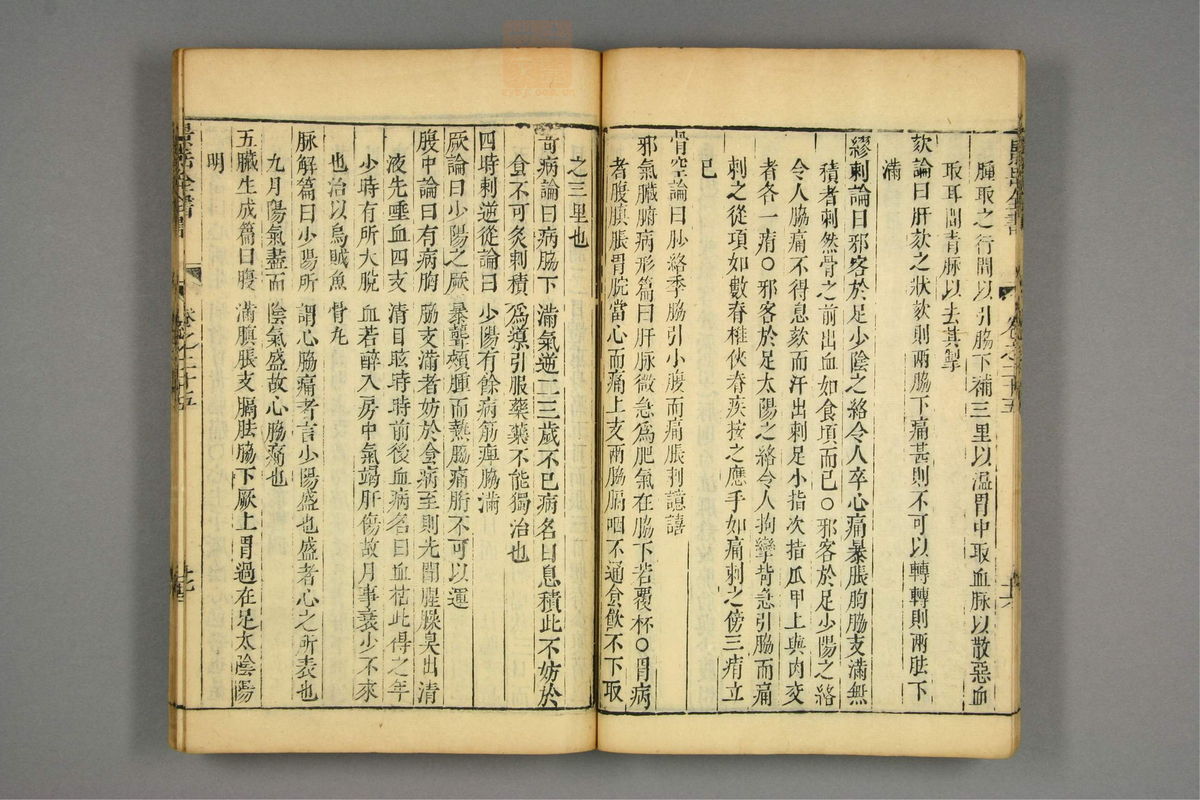 腫取之行間以引脇下補三里以溫胃中取血脉以散惡血
取耳間青脉以去其掣
欬論曰肝欬之狀欬則兩脇下痛甚則不可以轉轉則兩胠下
滿
繆刺論曰邪客於足少陰之絡令人卒心痛暴脹胸脇支滿無
積者刺然骨之前出血如食頃而已○邪客於足少陽之絡
令人脇痛不得息欬而汗出刺足小指次指瓜甲上與肉交
者各一痏○邪客於足太陽之絡令人拘攣背急引脇而痛
刺之從項如數脊椎俠脊疾按之應手如痛刺之傍三痏立
已
骨空論曰䏚絡季脇引小腹而痛脹刺譩譆
邪氣臟腑病形篇曰肝脉微急爲肥氣在脇下若覆杯○胃病
者腹䐜脹胃脘當心而痛上支兩脇膈咽不通食飲不下取
之三里也
奇病論曰病脇下滿氣逆二三歲不已病名曰息積此不妨於
食不可灸刺積爲導引服藥藥不能獨治也
四時刺逆從論曰少陽有餘病筋痺脇滿
厥論曰少陽之厥暴聾頰腫而熱脇痛䯒不可以運
腹中論曰有病胸脇支滿者妨於食病至則先聞腥臊臭出清
液先唾血四支清目眩時時前後血病名曰血枯此得之年
少時有所大脫血若醉入房中氣竭肝傷故月事衰少不來
也治以烏賊魚骨丸
脉解篇曰少陽所謂心脇痛者言少陽盛也盛者心之所表也
九月陽氣盡而陰氣盛故心脇痛也
五臟生成篇曰腹滿䐜脹支膈胠脇下厥上胃過在足太陰陽
明
景岳全書
卷之二十五